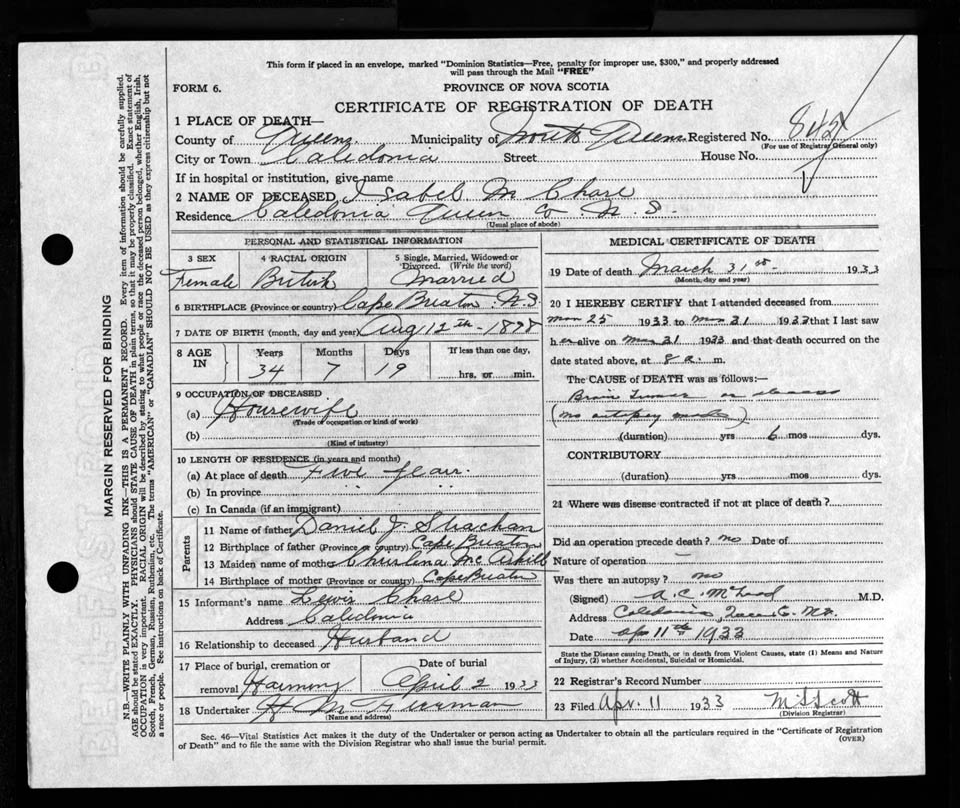 This form if placed in an envelope, marked "Dominion Statistics—Free, penalty for improper use, $300," and properly addressed
will pass through the Mail "FREE"
FORM 6.
PROVINCE OF NOVA SCOTIA
CERTIFICATE OF REGISTRATION OF DEATH
1 PLACE OF DEATH—
County of Queens Municipality of North Queens Registered No.
(For use of Registrar General only)
City or Town Caledonia Street House No.
If in hospital or institution, give name
2 NAME OF DECEASED Isabel M Chase
Residence Caledonia Queen Co N. S.
(Usual place of abode)
PERSONAL AND STATISTICAL INFORMATION
3 SEX 4 RACIAL ORIGIN 5 Single, Married, Widowed or
Divorced. (Write the word)
Female British Married
6 BIRTHPLACE (Province or country) Cape Breaton N.S
7 DATE OF BIRTH (month, day and year) Aug 12th 1898
8 AGE IN Years Months Days If less than one day,
34 7 19 hrs. or min.
9 OCCUPATION OF DECEASED
(a) Housewife
(Trade or occupation or kind of work)
(b)
(Kind of industry)
10 LENGTH OF RESIDENCE (in years and months)
(a) At place of death Five years
(b) In province
(c) In Canada (if an immigrant)
Parents
11 Name of father Daniel J. Strachan
12 Birthplace of father (Province or country) Cape Breaton
13 Maiden name of mother Mc Askill
14 Birthplace of mother (Province or country) Cape Breaton
15 Informant's name Lewis Chase
Address Caledonia
16 Relationship to deceased Husband
17 Place of burial, cremation or Date of burial
removal Harmony April 2 1933
18 Undertaker H M
(Name and address)
MEDICAL CERTIFICATE OF DEATH
19 Date of death March 31st 1933
(Month, day and year)
20 I HEREBY CERTIFY that I attended deceased from
Mar 25 1933 to Mar 31 1933 that I last saw
h er alive on Mar 31 1933 and that death occurred on the
date stated above, at 8 a. m.
The CAUSE OF DEATH was as follows:—
Brain Tumor or abscess
(no autopsy made)
(duration) yrs 6 mos dys.
CONTRIBUTORY
(duration) yrs mos dys.
21 Where was disease contracted if not at place of death?
Did an operation precede death? no Date of
Nature of operation —
Was there an autopsy? no
(Signed) A. C. McLeod M.D.
Address Caledonia, Queens Co. N.S.
Date Apr 11th 1933
State the Disease causing Death, or in death from Violent Causes, state (1) Means and Nature
of Injury, (2) whether Accidental, Suicidal or Homicidal.
22 Registrar's Record Number
23 Filed Apr. 11 1933 M S Scott
(Division Registrar)
Sec. 46—Vital Statistics Act makes it the duty of the Undertaker or person acting as Undertaker to obtain all the particulars required in the "Certificate of Registration
of Death" and to file the same with the Division Registrar who shall issue the burial permit.
(OVER)
MARGIN RESERVED FOR BINDING
N.B.—WRITE PLAINLY WITH UNFADING INK—THIS IS A PERMANENT RECORD. Every item of information should be carefully supplied.
AGE should be stated EXACTLY. PHYSICIANS should STATE CAUSE OF DEATH in plain terms, so that it may be properly classified. Exact statement of
OCCUPATION is very important. RACIAL ORIGIN will be described by stating to what people or race the deceased person belonged, whether English, Irish,
Scotch, French, German, Russian, Ruthenian, etc. The terms "AMERICAN" or "CANADIAN" SHOULD NOT BE USED as they express citizenship but not
a race or people. See instructions on back of Certificate.